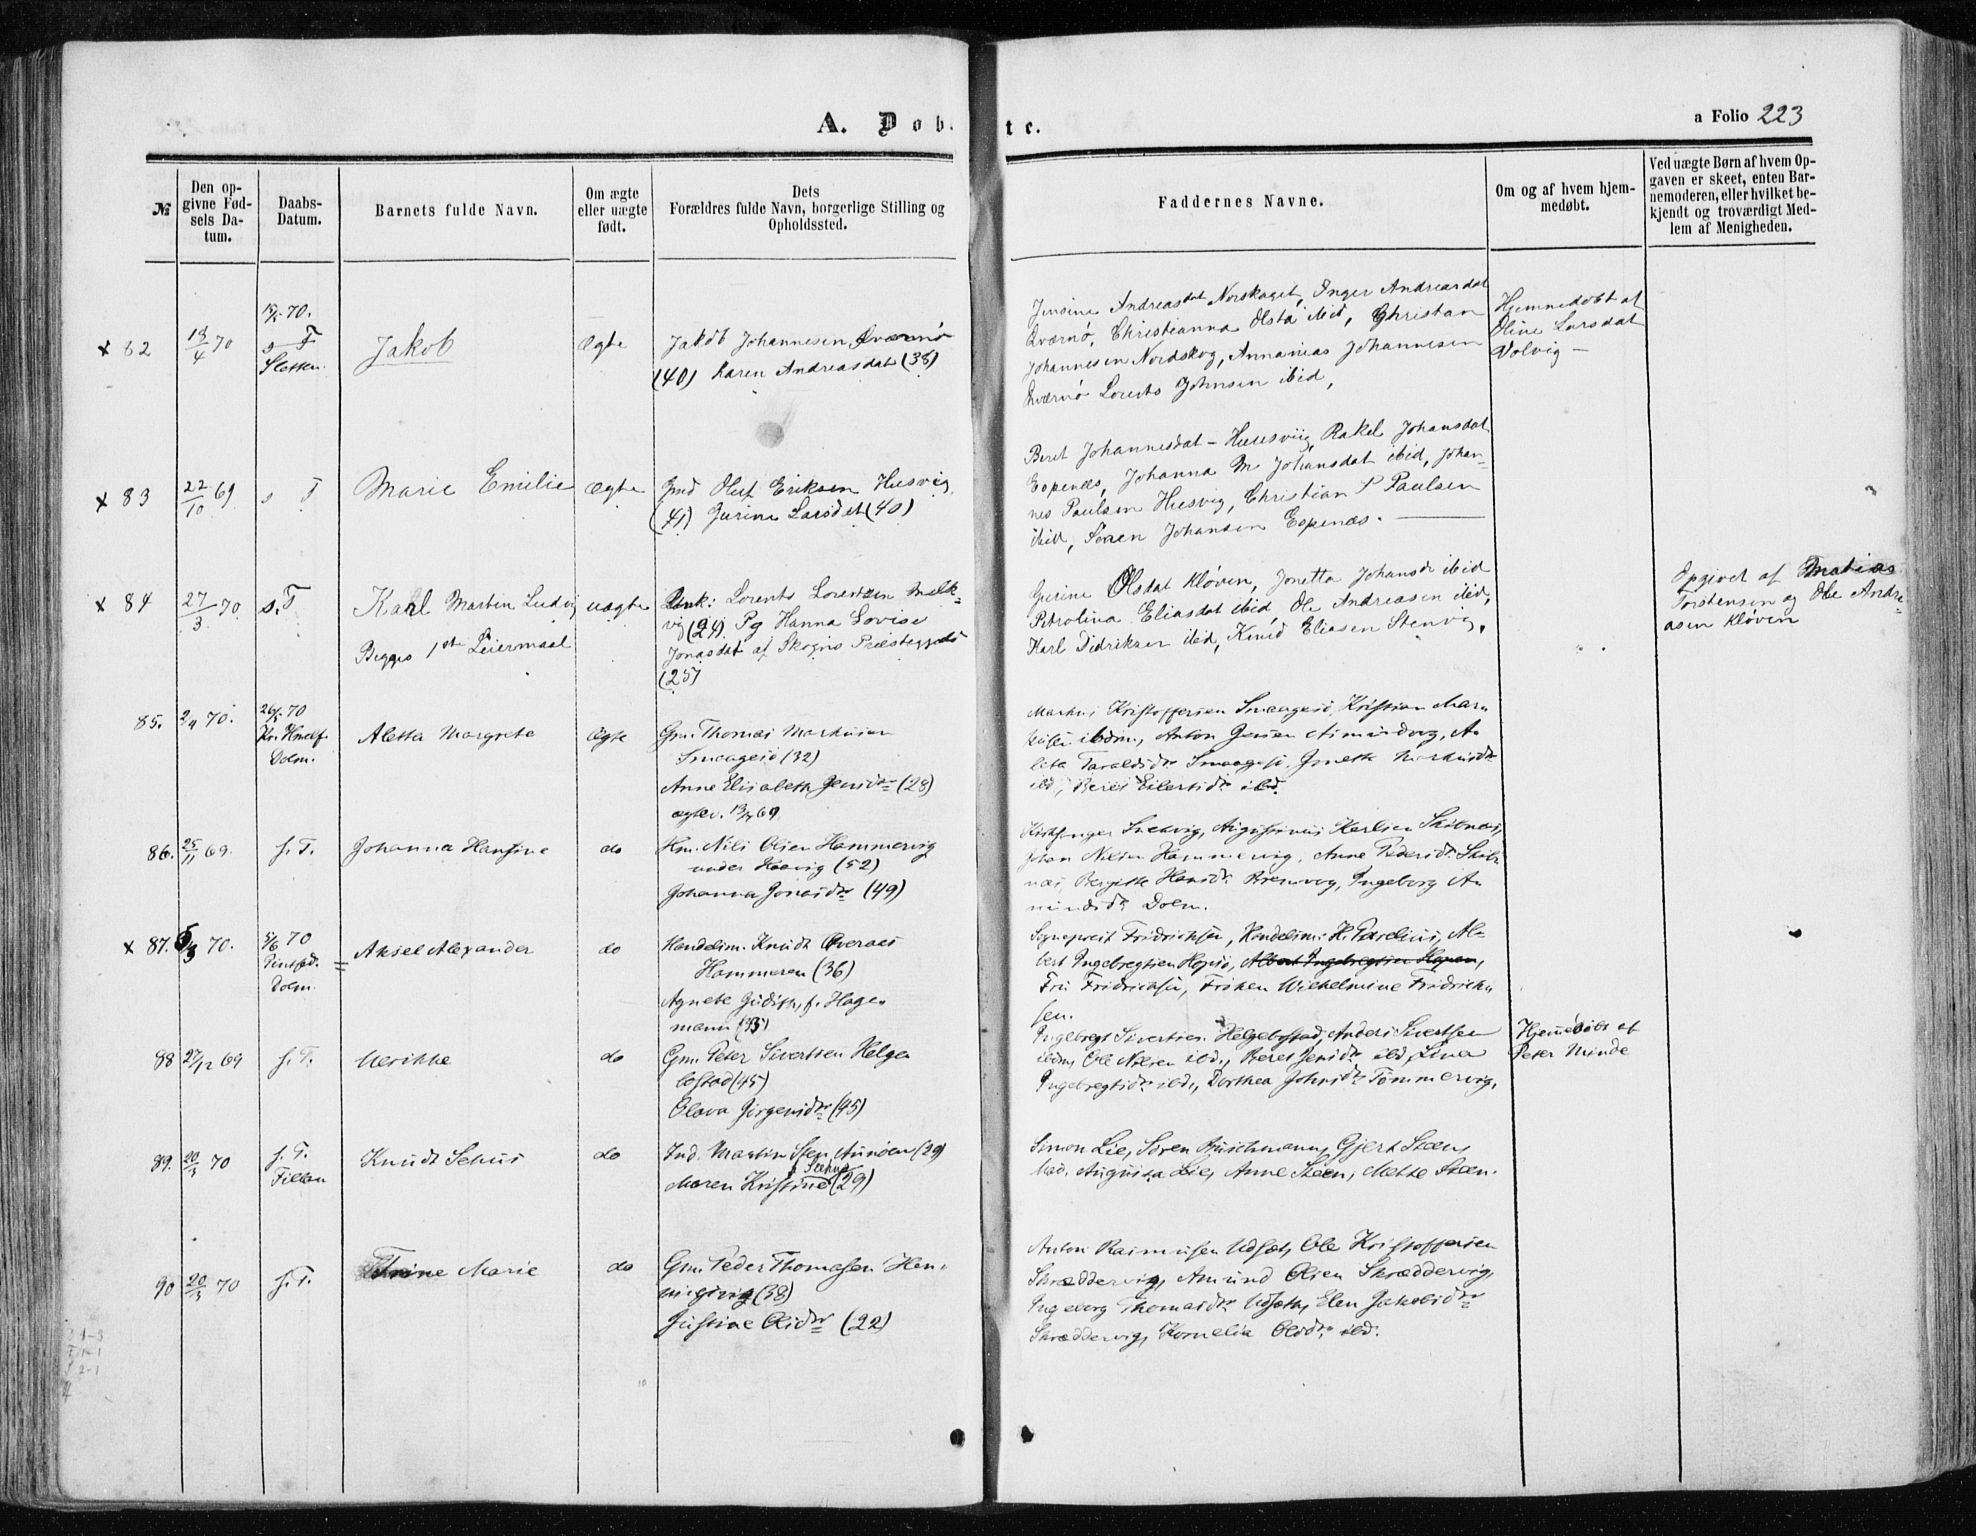 A. Døbte.
a Folio 223
№
Den opgivne Fødsels Datum.
Daabs-Datum.
Barnets fulde Navn.
Om ægte eller uægte født.
Dets Forældres fulde Navn, borgerlige Stilling og Opholdssted.
Faddernes Navne.
Om og af hvem hjemmedøbt.
Ved uægte Børn af hvem Opgaven er skeet, enten Barnemoderen, eller hvilket bekjendt og troværdigt Medlem af Menigheden.
70.
x 82 13/4 70 s F
Sletten
Jakob
Ægte
Jakob Johannesen Qværnø
(40) Karen Andreasdat (38)
Jensine Andreasdat Norskaget, Inger Andreasdat
Qværnø, Christianna Olsda ibid, Christian
Johannesen Nordskog, Annanias Johannesen
Qværnø Lorents Johnsen ibid,
Hjemmedøbt af
Oline Larsdat
Volvig —
x 83 22/10 69 s T
Marie Emilie
Ægte
Gmd Oluf Eriksen Husvig
(41) Gurine Larsdat (40)
Beret Johannesdat - Husvig, Rakel Johansdat
Espenæs, Johanna M Johansdat ibid, Johan-
nes Paulsen Husvig, Christian P Paulsen
ibid, Søren Johansen Espenæs.
x 84 27/3 70 s. T
Karl Martin Ludvig
Begges 1ste Leiermaal
uægte
Unk: Lorents Lorentzen Melk-
vig (24). Pg Hanna Lovise
Jonasdat af Skogns Præstegjeld
(25)
Gurine Olsdat Kløven, Jonetta Johansd ibid
Petrolina Eliasdat ibid, Ole Andreasen ibid,
Karl Didriksen ibid, Knud Eliasen Stenvig.
Opgivet af Matias
Torstensen og Ole Andre-
asen Kløven
85. 2/4 70. 26/5 70
Kr. Himelf.
Dolm.
Aletta Margrete
Ægte
Gm. Thomas Markusen
Smaagesø (32)
Anne Elisabeth Jensdtr (28)
ægtev. 69
Markus Kristoffersen Smaagesø, Kristian Mark-
ibdm., Anton Jensen
Taraldsdtr Smaagesø, Jonetta Markusdtr
ibd, Beret Eilertsdtr ibd.
86. 25/11 69. s. T.
Johanna Hansine
do
Hm. Nils Olsen Hammervig
under Havig (52)
Johanna Jonasdtr (49)
Kirksanger Karlsen Skibnæs,
Johan Nilsen Hammervig, Anne Pedersdtr Skib-
næs, Bergitte Hansdtr Ingeborg A-
mundsdtr Dolm.
x 87. 70. 5/6 70
Pintsed.
Dolm
Aksel Alexander
do
Handelsm. Knudt Overaas
Hammeren (36)
Agnete Judith, f. Hage-
mann (33)
Sognepræst Fridrichsen, Handelsm: H. Parelius, Al-
bert Ingebregtsen Hopsø, Albert Ingebregtsen Hopen,
Fru Fridrichsen, Frøken Wilhelmine Fridrich-
sen.
88 27/12 69 s. T.
Ulrikke
do
Gm. Peter Sivertsen Helge-
bostad (45)
Olava Jørgensdtr (45)
Ingebregt Sivertsen Helgebostad, Anders Sivertsen
ibdm, Ole Nilsen ibd., Beret Jensdtr ibd, Lina
Ingebregtsdtr ibd., Dorthea Johnsdtr Tømmervig.
Hjemdøbt af
Peter Minde
89. 20/3 70 s. T.
Fillan
Knudt Schus
do
Ind. Martin Sten Aunøen (29)
Maren Kristine (29)
Simon Lie, Søren Buschmann, Gjert Steen,
Mad. Augusta Lie, Anne Steen, Mette Steen.
90 20/3 70 s. T.
Trine Marie
do
Gm. Peder Thomasen Hen-
ningsvig (38)
Justine Olsdtr (22)
Anton Rasmusen Udsæt, Ole Kristoffersen
Skræddervig, Amund Olsen Skræddervig,
Ingeborg Thomasdtr Udsæt, Elen Jakobsdtr
Skræddervig, Kornelia Olsdtr ibd.